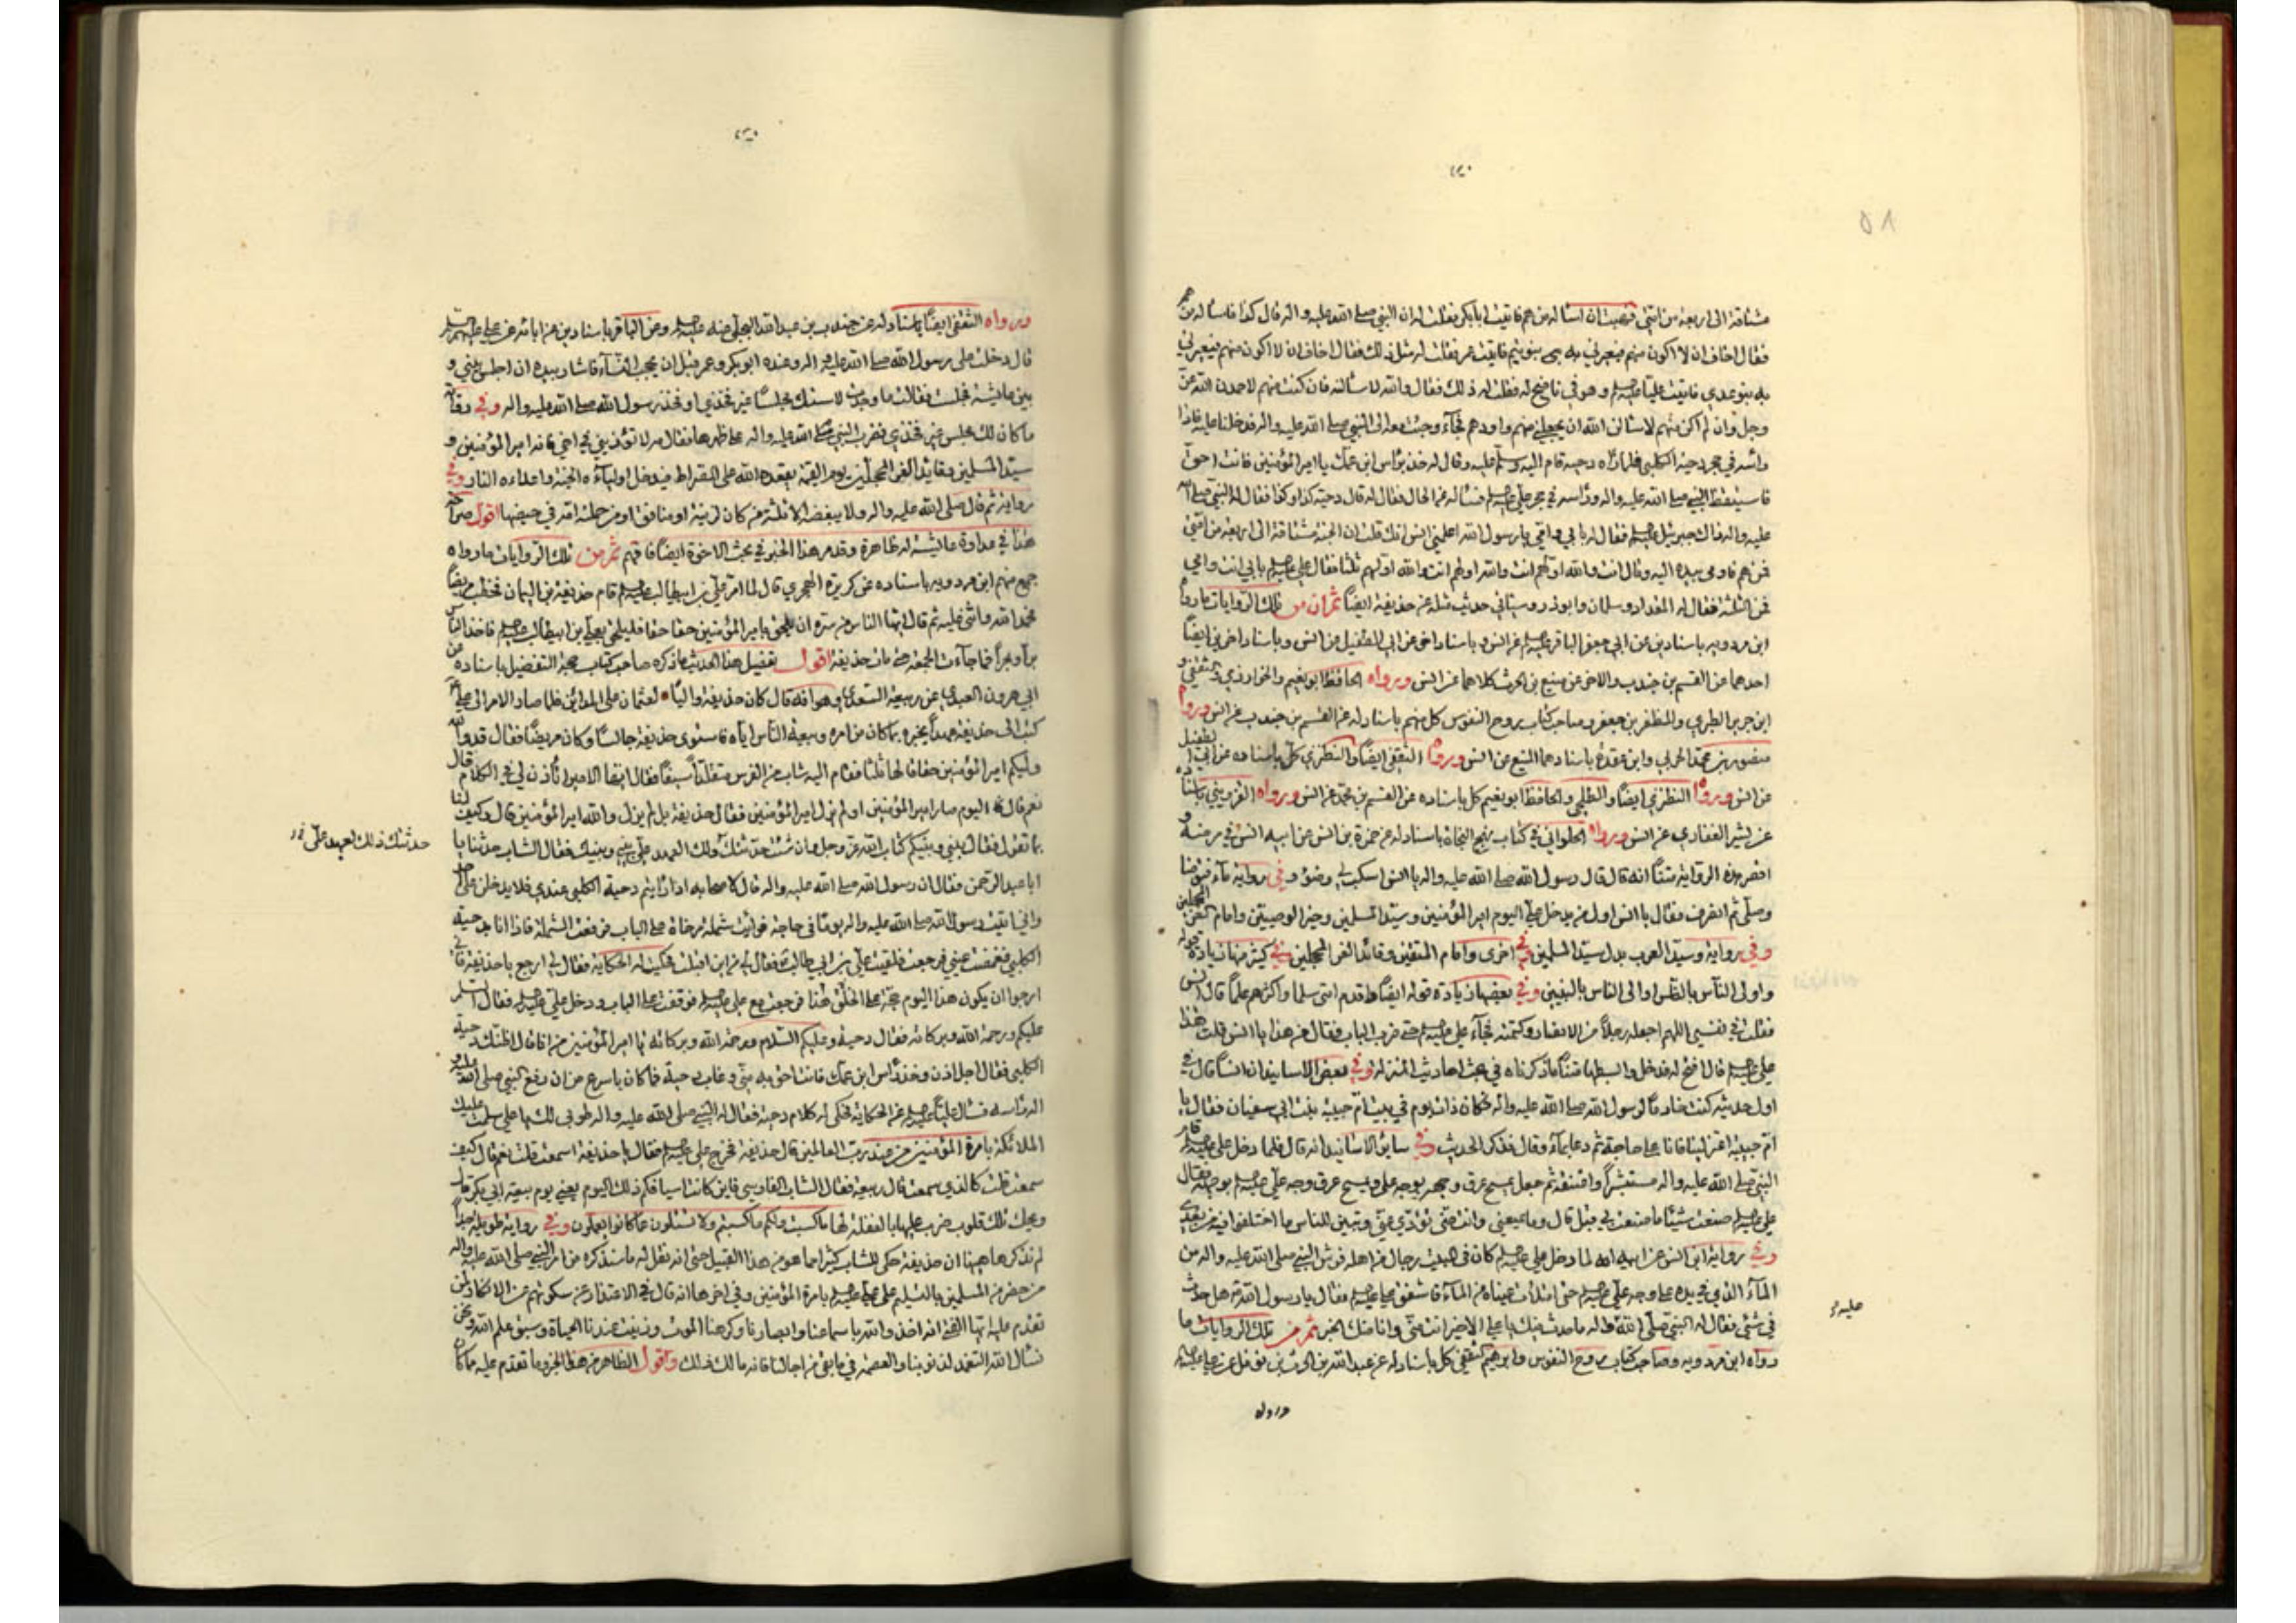 مشتاقة الى اربعة من امتي فهبت ان اسئاله من هم فاتيت ابابكر فقلت له ان النبي صلى الله عليه واله قال كذا فاساله من هم
فقال اخاف ان لا اكون منهم فيعيرني به بنو تيم فاتيت عمر فقلت له مثل ذلك فقال اخاف ان لا اكون منهم فيعيرني
به بنو عدي فاتيت عليا وهو في ناضح له فقلت له ذلك فقال والله لاسئالنه فان كنت منهم لاحمدن الله عز
وجل وان لم اكن منهم لاسئالن الله ان يجعلني منهم واودهم فجآء وجئت معه الى النبي صلى الله عليه واله فدخلنا عليه فاذا
راسه في حجر دحية الكلبي فلما رآه دحية قام اليه وسلم عليه وقال له خذ براس ابن عمك يا امير المؤمنين فانت احق
فاستيقظ النبي صلى الله عليه واله وراسه في حجر علي فسئاله عن الحال فقال له قال دحية كذا وكذا فقال له النبي صلى الله
عليه واله ذاك جبرئيل فقال له بابي وامي يا رسول الله اعلمني انس انك قلت ان الجنة مشتاقة الى اربعة من امتي
فمن هم فاومى بيده اليه وقال انت والله اولهم انت والله اولهم انت والله اولهم ثلثا فقال علي بابي انت وامي
فمن الثلثة فقال له المقداد وسلمان وابوذر وسياتي حديث مثله عن حذيفة ايضا ثم ان من تلك الروايات ما رواه
ابن مردويه باسنادين عن ابي جعفر الباقر عن انس وباسناد اخر عن ابي الطفيل عن انس وباسناد اخرين ايضا
احدهما عن القسم بن جندب والاخر عن منيع بن الحرث كلاهما عن انس ورواه الحافظ ابو نعيم والخوارزمي والثقفي و
ابن جرير الطبري والمظفر بن جعفر وصاحب كتاب روح النفوس كل منهم باسناد له عن القسم بن جندب عن انس ورواه
منصور بن محمد الحربي وابن عقدة باسنادهما عن انس ورواه الثقفي ايضا والنطنزي كل باسناده عن ابي الطفيل
عن انس ورواه النطنزي ايضا والحافظ ابو نعيم كل باسناده عن القسم بن محمد عن انس ورواه القزويني
عن بشر الغفاري عن انس ورواه الحلواني في كتاب نهج النجاة باسناد له عن حمزة بن انس عن ابيه انس في مرضه و
اخصر هذه الرواية متنا انه قال قال رسول الله صلى الله عليه واله يا انس اسكب لي وضوء وفي رواية مآء فتوضا
وصلى ثم انصرف فقال يا انس اول من يدخل علي اليوم امير المؤمنين وسيد المسلمين وخير الوصيين وامام الغر المحجلين
وفي رواية وسيد العرب بدل سيد المسلمين وفي اخرى وامام المتقين وقائد الغر المحجلين وفي كثير منها زيادة قوله
واولى الناس بالناس اولى الناس بالنبيين وفي بعضها زيادة قوله ايضا اقدم امتي سلما واكثرهم علما قال انس
فقلت في نفسي اللهم اجعله رجلا من الانصار وكتمته فجآء علي حتى ضرب الباب فقال من هذا يا انس قلت هذا
علي قال افتح له فدخل وابسطها متنا ما ذكرناه في بحث احاديث المنزلة وفي بعض الاسانيد ان انسا قال في
اول حديثه كنت خادما لرسول الله صلى الله عليه واله فكان ذات يوم في بيت ام حبيبة بنت ابي سفيان فقال يا
ام حبيبة اعتزلينا فانا على حاجة ثم دعا بمآء وقال فذكر الحديث وفي سائر الاسانيد انه قال فلما دخل علي قام
النبي صلى الله عليه واله مستبشرا واعتنقه ثم جعل يمسح عرق وجهه بوجه علي ويمسح عرق وجه علي بوجهه فقال
علي صنعت شيئا ما صنعت بي قبل قال وما يمنعني وانت عني تؤدي عني وتبين للناس ما اختلفوا فيه من بعدي
وفي رواية ابن انس عن ابيه انه لما دخل علي كان في البيت رجال من اهله فرش النبي صلى الله عليه واله من
المآء الذي في يده على وجه علي حتى امتلأت عيناه من المآء فاشفق علي فقال يا رسول الله هل حدث
في شئ فقال له النبي صلى الله واله ما حدث فيك يا علي الا خير انت مني وانا منك الخبر ثم من تلك الروايات ما
رواه ابن مردويه وصاحب كتاب روح النفوس وابراهيم الثقفي كل باسناد له عن عبد الله بن الحرث بن نوفل عن علي
عليه
ورواه
ورواه الثقفي ايضا باسناد له عن جندب بن عبد الله البجلي عنه وعن الباقر باسنادين عن ابائه عن علي
قال دخلت على رسول الله صلى الله عليه واله وعنده ابوبكر وعمر قبل ان يحجب النسآء فاشار بيده ان اجلس بيني و
بين عايشة فجلست فقالت ما وجدت لاستك مجلسا غير فخذي او فخذ رسول الله صلى الله عليه واله وفي رواية
ما كان لك مجلس غير فخذي فضرب النبي صلى الله عليه واله على ظهرها فقال مه لا تؤذيني في اخي فانه امير المؤمنين و
سيد المسلمين وقائد الغر المحجلين يوم القيمة يقعده الله على الصراط فيدخل اوليآءه الجنة واعداءه النار وفي
رواية ثم قال صلى الله عليه واله ولا يبغضه الا ثلثة من كان لزنية او منافق او من حملته امه في حيضها اقول
هذا في عداوة عايشة له ظاهرة وقد مر هذا الخبر في بحث الاخوة ايضا فافهم ثم من تلك الروايات ما رواه
جمع منهم ابن مردويه باسناده عن كريزة الهجري قال لما امر علي بن ابيطالب قام حذيفة بن اليمان فخطب مريضا
فحمد الله واثنى عليه ثم قال ايها الناس من سره ان يلحق بامير المؤمنين حقا حقا فليلحق بعلي بن ابيطالب فاخذ الناس
برا وبحرا فما جآءت الجمعة حتى مات حذيفة اقول تفصيل هذا الحديث ما ذكره صاحب كتاب حجة التفضيل باسناده عن
ابي هرون العبدي عن ربيعة السعدي وهو انه قال كان حذيفة واليا لعثمان على المدائن فلما صار الامر الى علي
كتب الى حذيفة عهدا يخبره بما كان من امره وبيعة الناس اياه فاستوى حذيفة جالسا وكان مريضا فقال قد والله
وليكم امير المؤمنين حقا قالها ثلثا فقام اليه شاب من الفرس متقلدا سيفا فقال ايها الامير اتأذن لي في الكلام قال
نعم قال اليوم صار امير المؤمنين او لم يزل امير المؤمنين فقال حذيفة بل لم يزل والله امير المؤمنين قال وكيف لنا
بما تقول فقال بيني وبينكم كتاب الله عز وجل وان شئت حدثتك ولك العهد علي بيني وبينك فقال الشاب حدثنا يا
حدثتك ذلك لعهد علي
ابا عبد الرحمن فقال ان رسول الله صلى الله عليه واله قال لاصحابه اذا رايتم دحية الكلبي عندي فلا يدخلن علي احد
واني اتيت رسول الله صلى الله عليه واله يوما في حاجة فرايت شملة مرخاة على الباب فرفعت الشملة فاذا انا بدحية
الكلبي فغمضت عيني فرجعت فلقيت علي بن ابي طالب فقال لي من اين اقبلت فحكيت له الحكاية فقال لي ارجع يا حذيفة فاني
ارجوا ان يكون هذا اليوم حجة على الخلق هنا فرجعت مع علي فوقفت على الباب ودخل علي فقال السلام
عليكم ورحمة الله وبركاته فقال دحية وعليكم السلام ورحمة الله وبركاته يا امير المؤمنين من انا قال اظنك دحية
الكلبي فقال اجل ادن وخذ راس ابن عمك فانت احق به مني وغاب دحية فما كان باسرع من ان رفع النبي صلى الله عليه و
اله راسه فسال عليا عن الحكاية فحكى له كلام دحية فقال له النبي صلى الله عليه واله طوبى لك يا علي سلمت عليك
الملائكة بامرة المؤمنين من عند رب العالمين قال حذيفة فخرج علي فقال يا حذيفة اسمعت قلت نعم قال كيف
سمعت قلت كالذي سمعت قال ربيعة فقال الشاب الفارسي فاين كانت اسيافكم ذلك اليوم يعني يوم بيعة ابي بكر قال
ويحك تلك قلوب ضرب عليها بالغفلة لها ما كسبت ولكم ما كسبتم ولا تسئلون عما كانوا يعملون وفي رواية طويلة جدا
لم نذكرها ههنا ان حذيفة حكى للشاب كثيرا مما هو من هذا القبيل حتى انه نقل له ما سنذكره من امر النبي صلى الله عليه واله
من حضر من المسلمين بالتسليم على علي بامرة المؤمنين وفي اخرها انه قال في الاعتذار عن سكوتهم عن الانكار لمن
تقدم عليه ايها الفتى انه اخذ والله باسماعنا وابصارنا وكرهنا الموت وزينت عندنا الحياة وسبق علم الله ونحن
نسال الله التغمد لذنوبنا والعصمة فيما بقى من اجالنا فانه مالك ذلك واقول الظاهر من هذا الخبر وما تقدم عليه ما كان